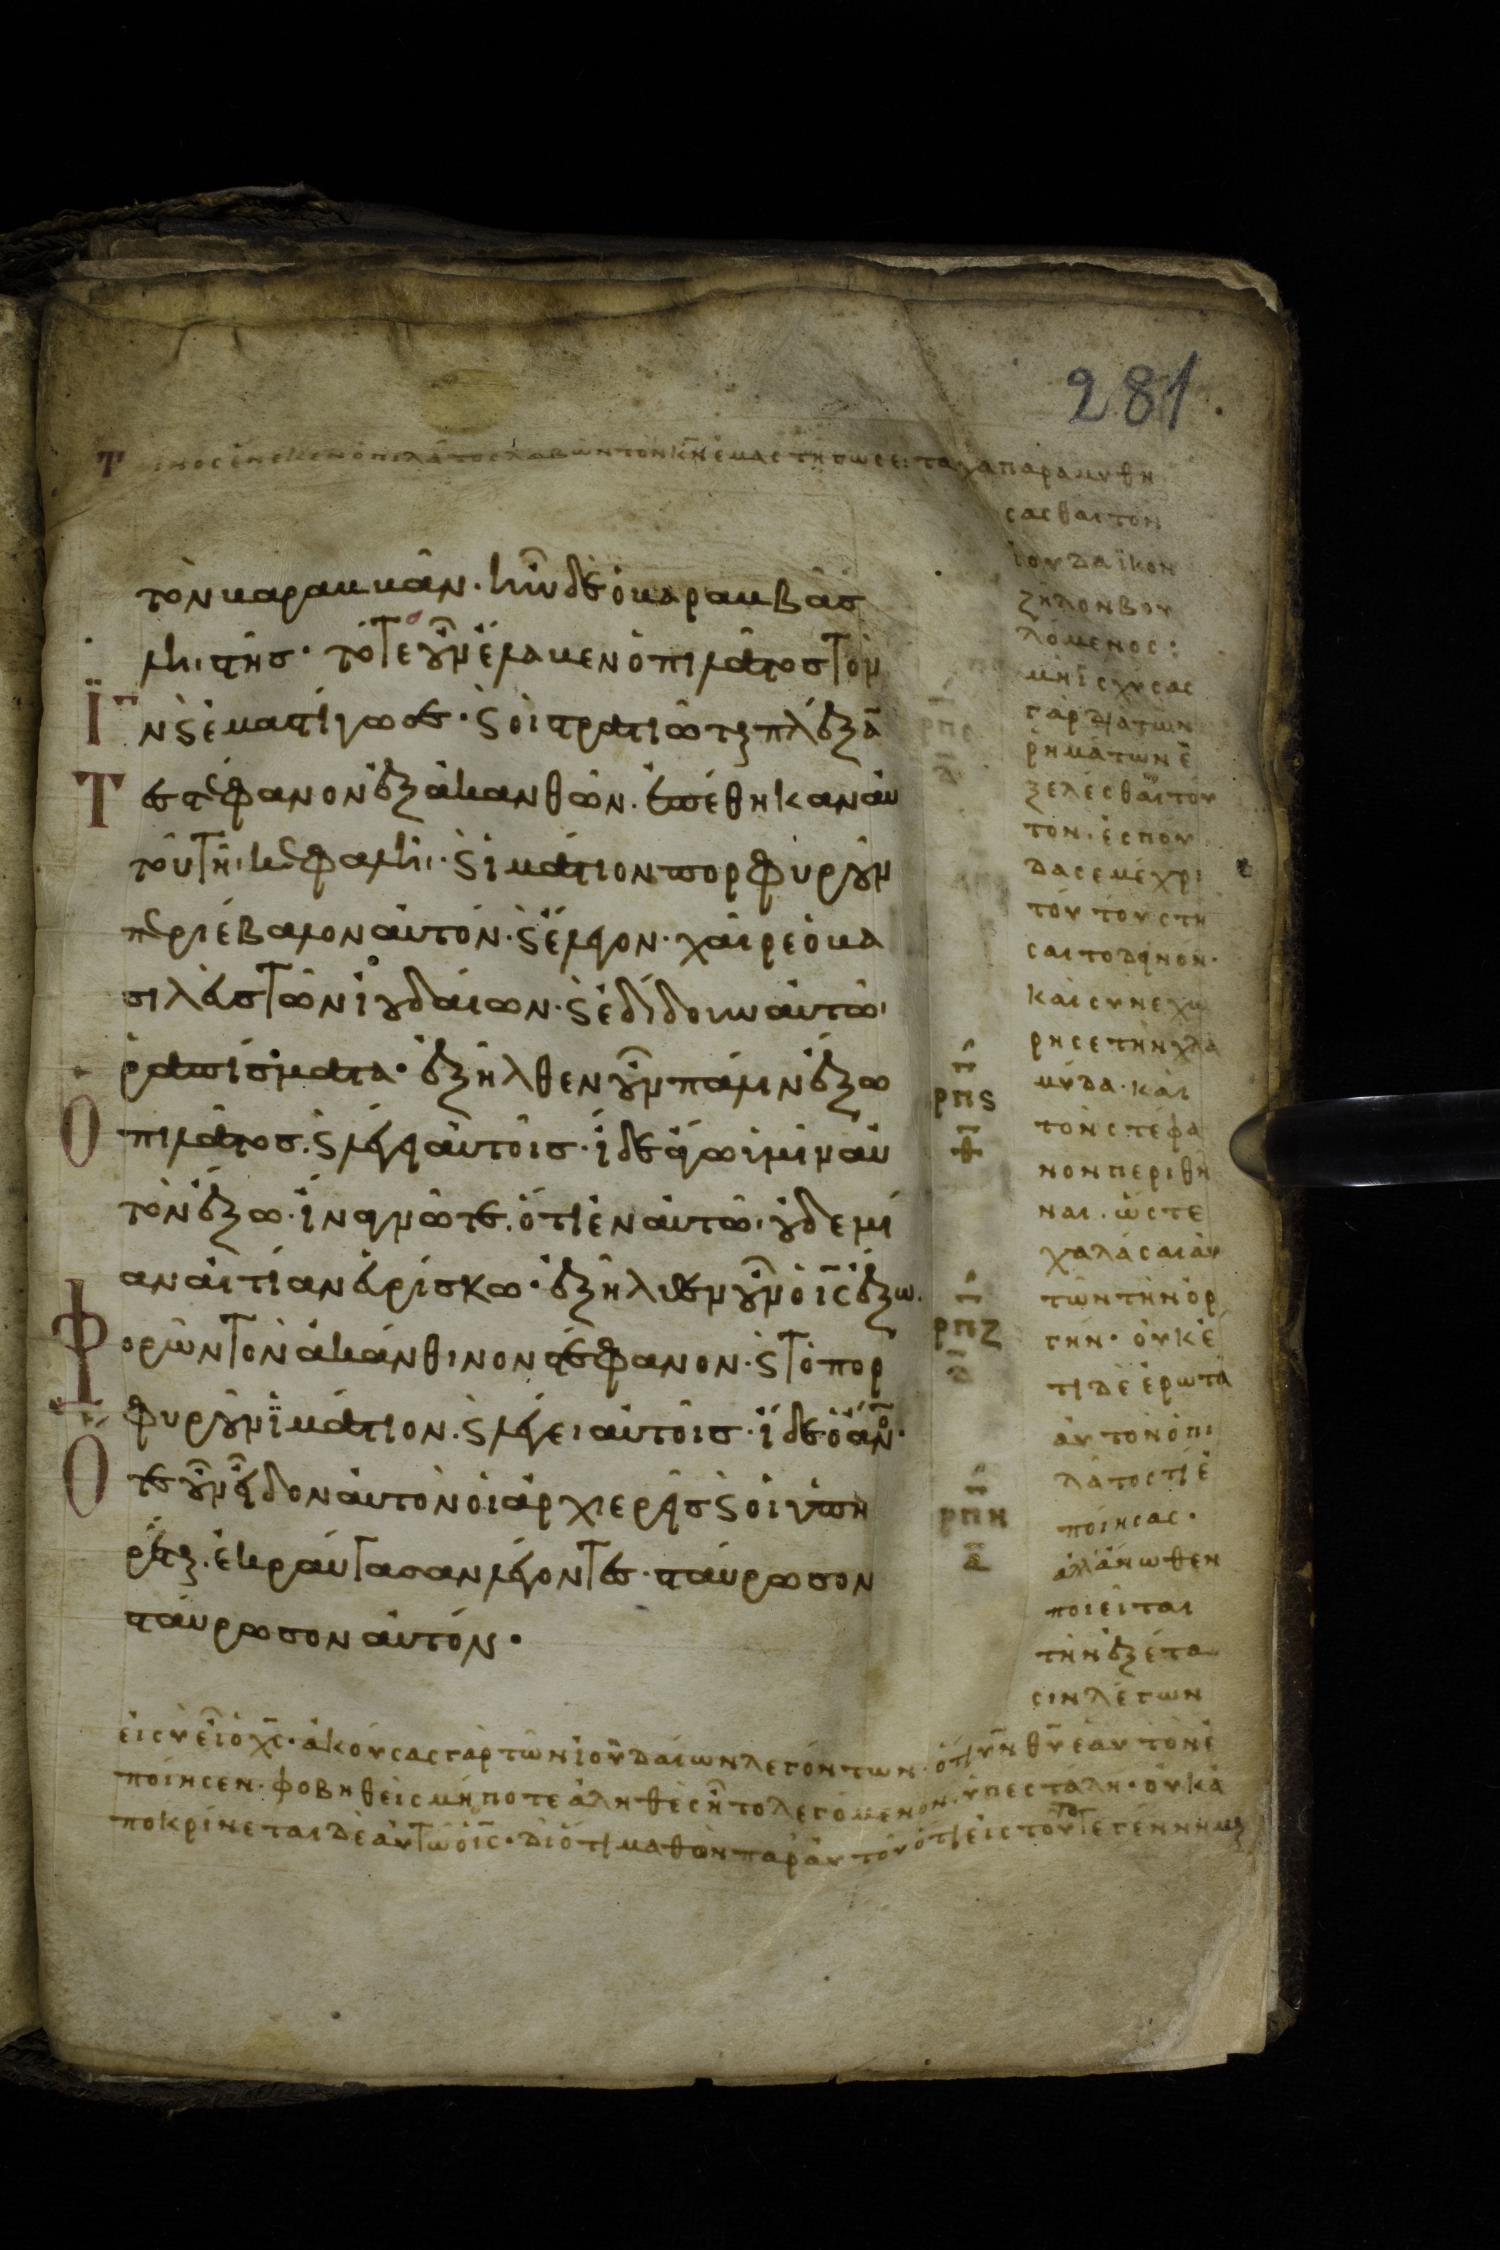 281
τίνος ἕνεκεν ὁ πιλάτος λαβὼν τὸν κν ἐμαστίγωσε: τάχα παραμυθή
σασθαι τὸν
ἰουδαϊκὸν
ζῆλον βου
λόμενος:
μὴ ἰσχύσας
γὰρ διὰ τῶν
ῥημάτων ἐ
ξελέσθαι τοῦ
τον· ἔσπου
δασε μέχρι
τούτου στῆ
σαι τὸ δεινόν·
καὶ συνεχώ
ρησε τὴν χλα
μύδα· καὶ
τὸν στέφα
νον περιθῆ
ναι· ὥστε
χαλάσαι αὐ
τῶν τὴν ὀρ
γήν· οὐκέ
τι δὲ ἐρωτᾶ
αὐτὸν ὁ πι
λάτος τί ἐ
ποίησας·
ἀλλ' ἄνωθεν
ποιεῖται
τὴν ἐξέτα
σιν λέγων
τὸν βαραββᾶν· ἦν δὲ ὁ βαραββᾶσ
λῃστήσ· τότε οὖν ἔλαβεν ὁ πιλᾶτοσ τὸν
ιν ϛ ἐμαστίγωσε· ϛ οἱ στρατιῶται πλέξαν
τες στέφανον ἐξ ἀκανθῶν· ἐπέθηκαν αὐ
τοῦ τῆι κεφαλῆι· ϛ ἱμάτιον πορφυροῦν
περιέβαλον αὐτόν· ϛ ἔλεγον· χαῖρε ὁ βα
σιλεὺσ τῶν ἰουδαίων· ϛ ἐδίδουν αὐτῶι
ῥαπίσματα· ἐξῆλθεν οὖν πάλιν ἔξω
ὁ πιλᾶτοσ· ϛ λέγει αὐτοῖσ· ἴδε ἄγω ὑμῖν αὐ
τὸν ἔξω· ἵνα γνῶτε· ὅτι ἐν αὐτῶι οὐδεμί
αν αἰτίαν εὑρίσκω· ἐξῆλθεν οὖν ὁ ις ἔξω·
φορῶν τὸν ἀκάνθινον στέφανον· ϛ τὸ πορ
φυροῦν ἱμάτιον· ϛ λέγει αὐτοῖσ· ἴδε ὁ ανοσ·
ὅτε οὖν εἶδον αὐτὸν οἱ ἀρχιερεῖσ ϛ οἱ ὑπη
ρέται· ἐκραύγασαν λέγοντεσ· σταύρωσον
σταύρωσον αὐτόν·
ρπϛ
ρπζ
ρπη
εἰ σὺ εἶ ὁ χς· ἀκούσας γὰρ τῶν ἰουδαίων λεγόντων· ὅτι υν θυ ἑαυτὸν ἐ
ποίησεν· φοβηθεὶς μήποτε ἀληθὲς ἦν τὸ λεγόμενον· ὑπεστάλη· οὐκ ἀ
ποκρίνεται δὲ αὐτῶ ὁ ις· διότι μαθὼν παρ' αὐτοῦ ὅτι εἰς τοῦτο γεγέννημαι